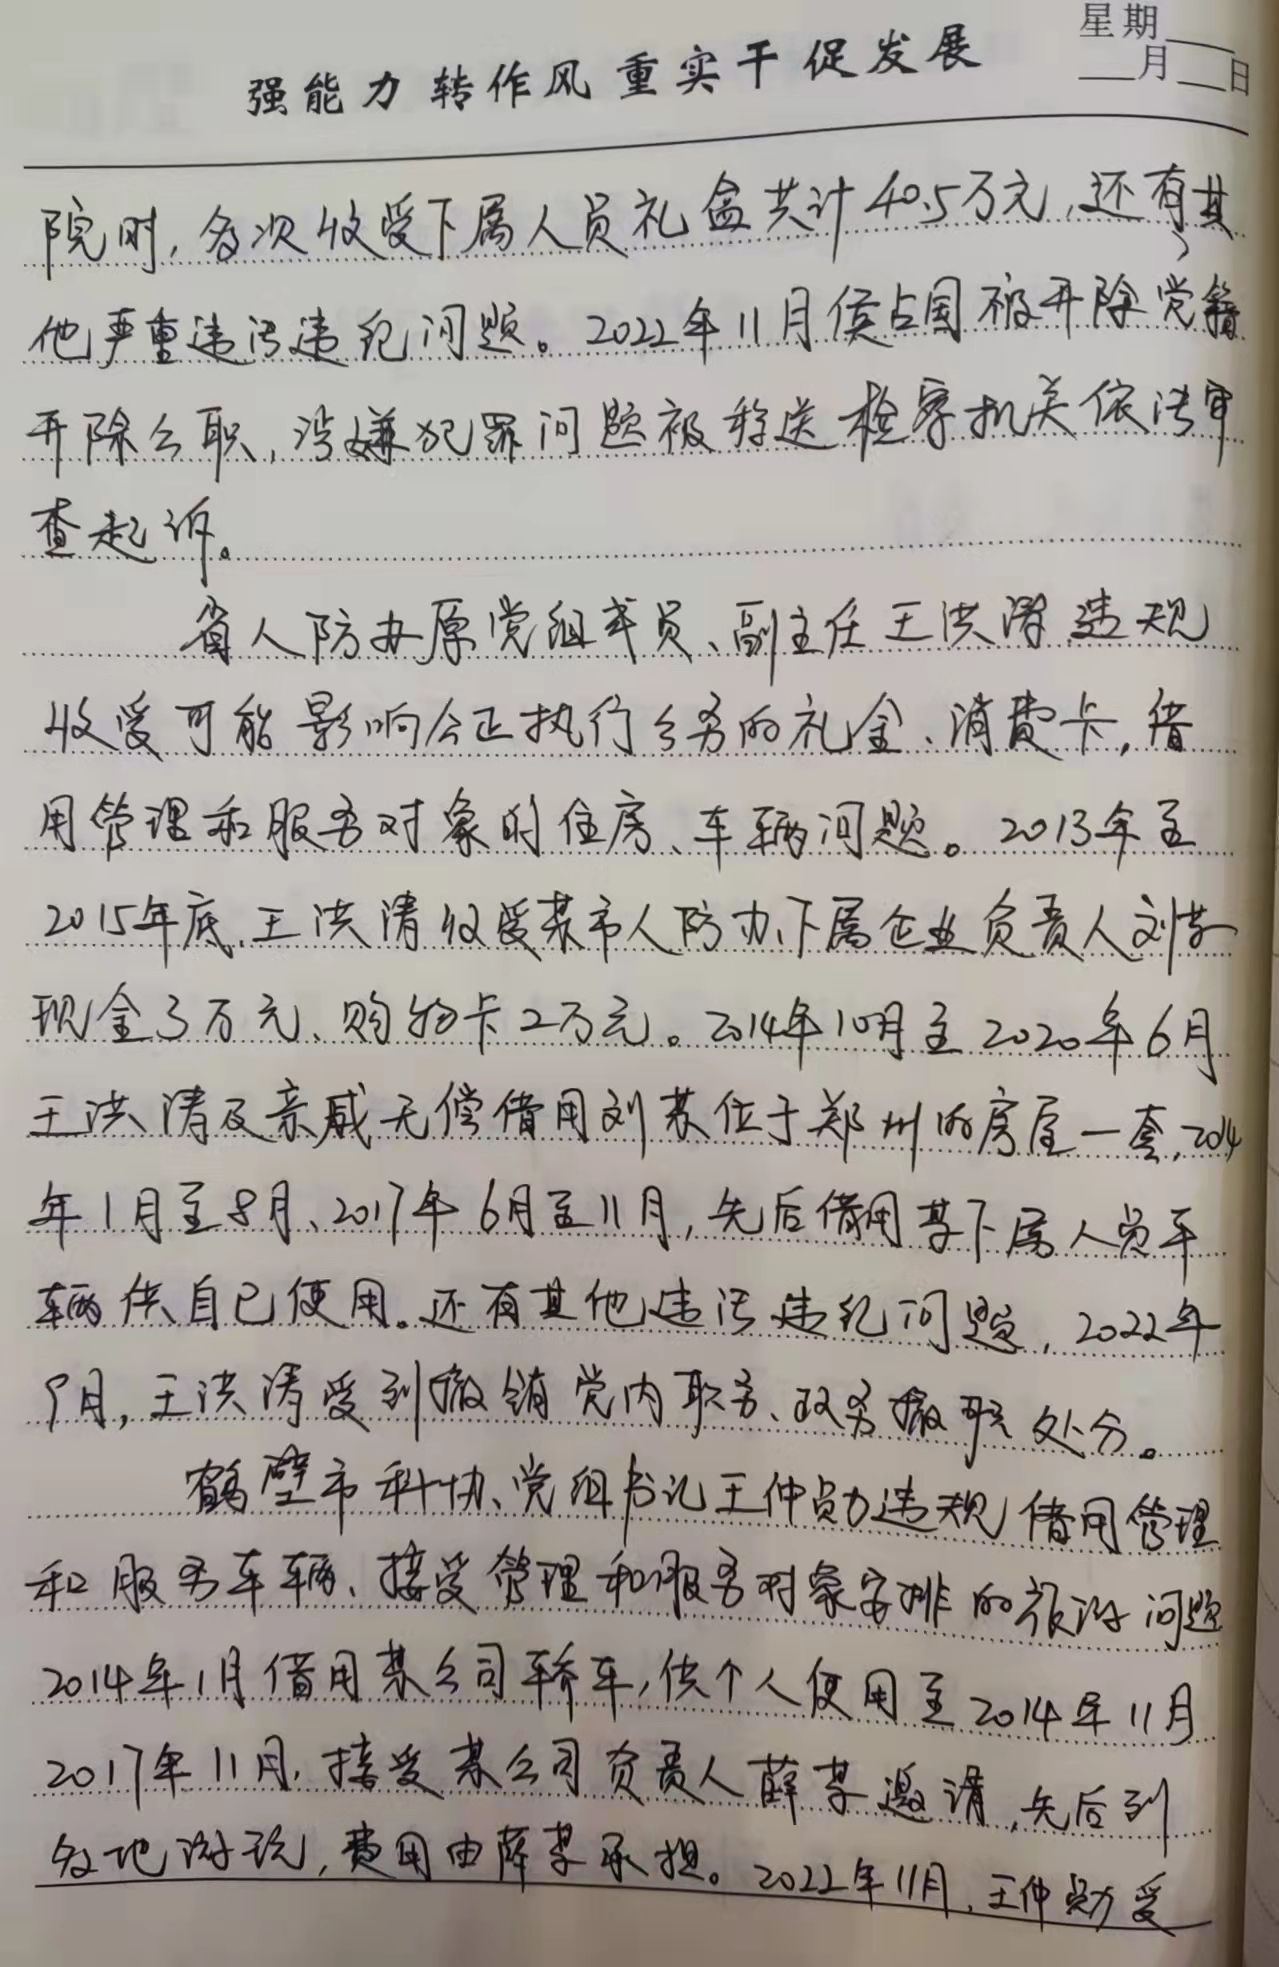 星期
月 日
强能力 转作风 重实干 促发展
院时,多次收受下属人员礼金共计40.5万元,还有其
他严重违法违纪问题。2022年11月侯占国被开除党籍
开除公职,涉嫌犯罪问题被移送检察机关依法审
查起诉。
省人防办原党组成员、副主任王洪涛违规
收受可能影响公正执行公务的礼金、消费卡,借
用管理和服务对象的住房、车辆问题。2013年至
2015年底,王洪涛收受某市人防办下属企业负责人刘某
现金3万元、购物卡2万元。2014年10月至2020年6月
王洪涛及亲戚无偿借用刘某位于郑州的房屋一套,2014
年1月至8月、2017年6月至11月,先后借用某下属人员车
辆供自己使用。还有其他违法违纪问题,2022年
9月,王洪涛受到撤销党内职务、政务撤职处分。
鹤壁市科协、党组书记王仲勋违规借用管理
和服务车辆、接受管理和服务对象安排的旅游问题
2014年1月借用某公司轿车,供个人使用至2014年11月
2017年11月,接受某公司负责人薛某邀请,先后到
多地游玩,费用由薛某承担。2022年11月,王仲勋受